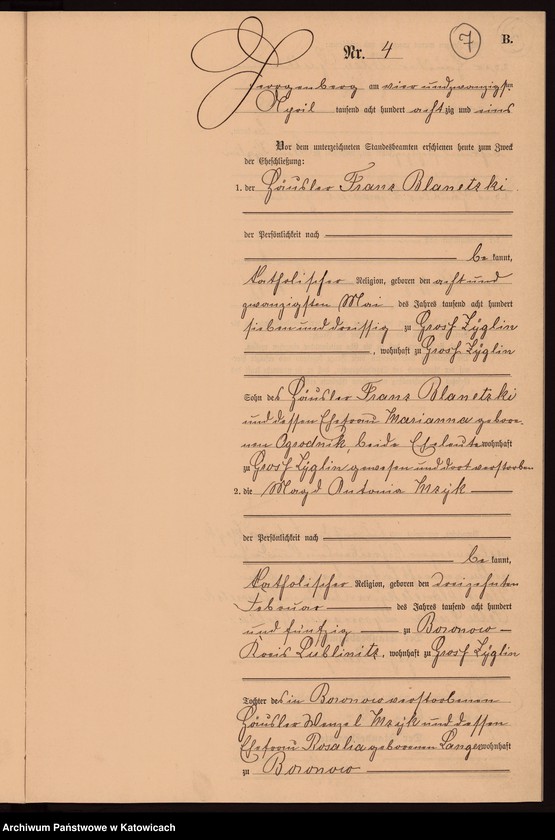 7
B.
Nr. 4
Georgenberg am vier und zwanzigsten
April tausend acht hundert achtzig und eins
Vor dem unterzeichneten Standesbeamten erschienen heute zum Zweck
der Eheschließung:
1. der Häusler Franz Blanetzki
der Persönlichkeit nach
be kannt,
katholischer Religion, geboren den acht und
zwanzigsten Mai des Jahres tausend acht hundert
sieben und dreissig zu Groß Zyglin
, wohnhaft zu Groß Zyglin
Sohn des Häusler Franz Blanetzki
und dessen Ehefrau Marianna gebore-
nen Ogrodnik, beide Eheleute wohnhaft
zu Groß Zyglin gewesen und dort verstorben
2. die Magd Antonia Mzyk
der Persönlichkeit nach
be kannt,
katholischer Religion, geboren den dreizehnten
Februar des Jahres tausend acht hundert
und fünfzig zu Boronow
Kreis Lublinitz, wohnhaft zu Groß Zyglin
Tochter des in Boronow verstorbenen
Häusler Wenzel Mzyk und dessen
Ehefrau Rosalia geborenen Langer wohnhaft
zu Boronow
Archiwum Państwowe w Katowicach